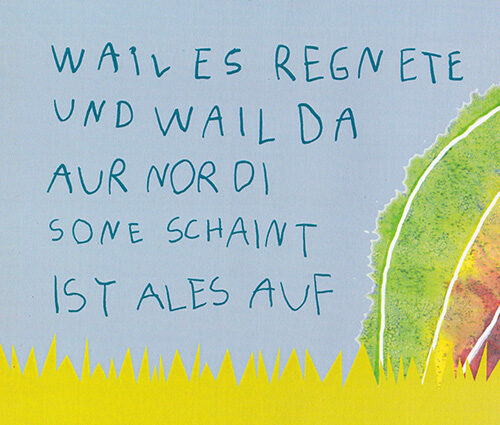 WAIL ES REGNETE
UND WAIL DA
AUR NOR DI
SONE SCHAINT
IST ALES AUF